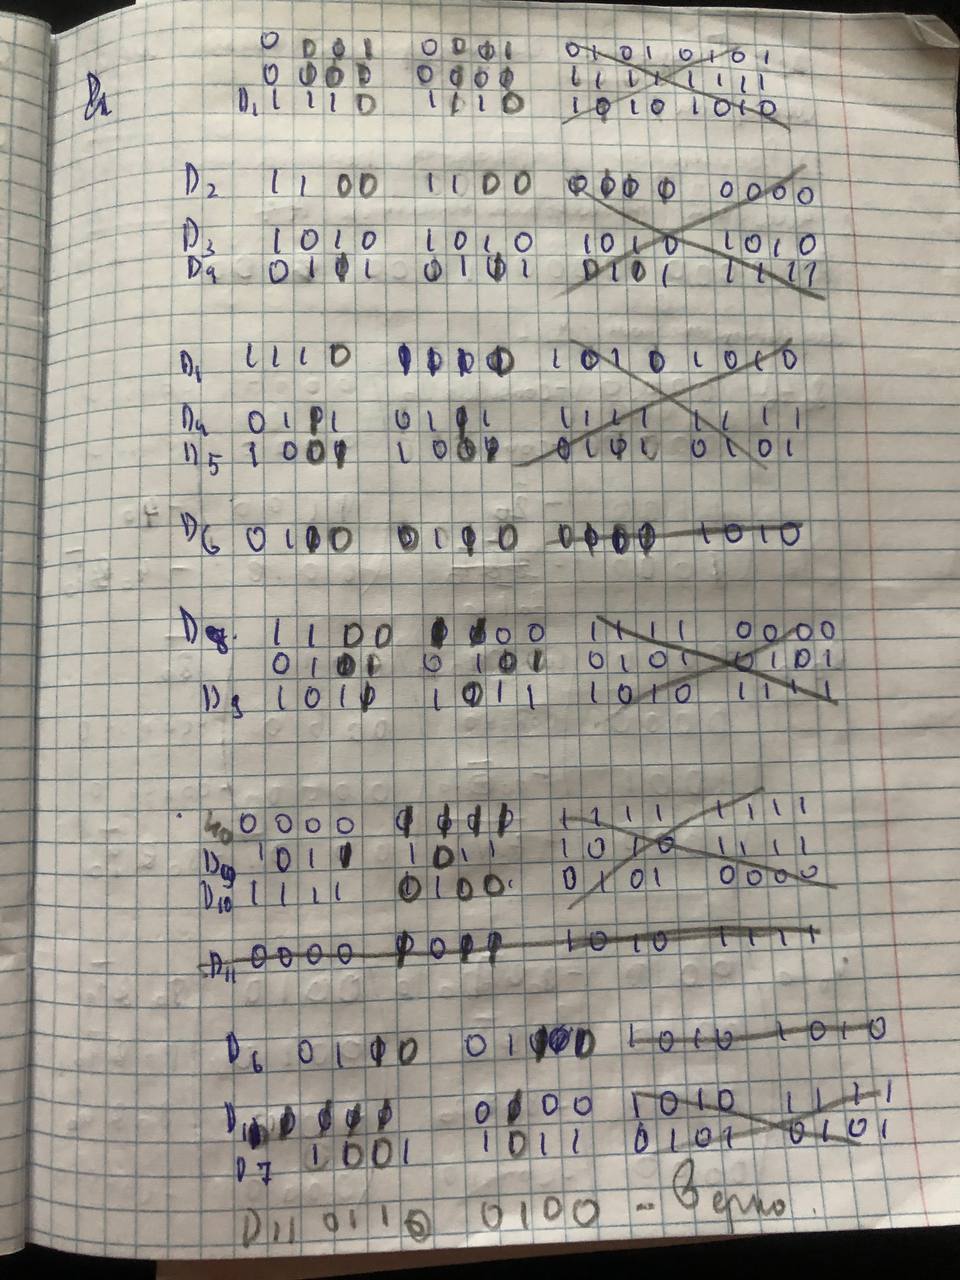 0 0 0 1 0 0 0 1 0 1 0 1 0 1 0 1
0 0 0 0 0 0 0 0 1 1 1 1 1 1 1 1
D1 1 1 1 0 1 1 1 0 1 0 1 0 1 0 1 0
D2 1 1 0 0 1 1 0 0 0 0 0 0 0 0 0 0
D3 1 0 1 0 1 0 1 0 1 0 1 0 1 0 1 0
D4 0 1 0 1 0 1 0 1 0 1 0 1 1 1 1 1
D1 1 1 1 0 1 0 1 0 1 0 1 0
D4 0 1 1 0 1 1 1 1 1 1 1 1 1 1
D5 1 0 0 1 1 0 0 0 1 0 1 0 1 0 1
D6 0 1 0 0 0 1 0 0 0 0 0 0 1 0 1 0
D8 1 1 0 0 0 0 1 1 1 1 0 0 0 0
0 1 0 1 0 1 0 1 0 1 0 1 0 1 0 1
D9 1 0 1 1 0 1 1 1 0 1 0 1 1 1 1
0 0 0 0 1 1 1 1 1 1 1 1
D9 1 0 1 1 1 0 1 1 1 0 1 0 1 1 1 1
D10 1 1 1 1 0 1 0 0 0 1 0 1 0 0 0 0
D11 0 0 0 0 0 1 0 1 0 1 1 1 1
D6 0 1 0 0 1 0 1 0 1 0 1 0 1 0
0 0 0 1 0 1 0 1 1 1 1
D7 1 0 0 1 1 0 1 1 0 1 0 1 0 1 0 1
D11 0 1 1 0 0 1 0 0 - Верно.